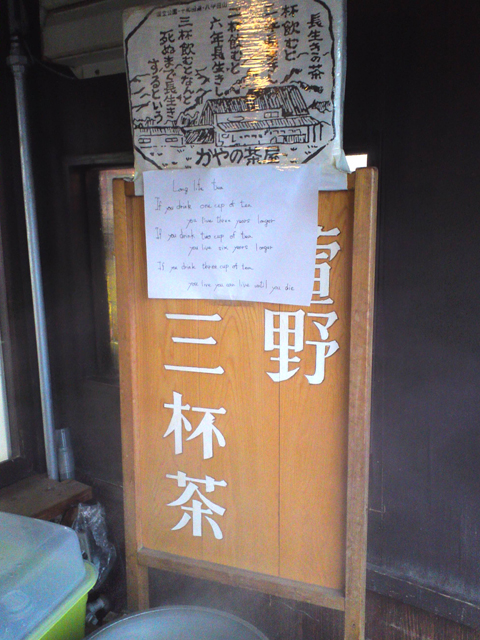 長生きの茶
杯飲むと
二杯飲むと
六年長生きし
三杯飲むとなんと
死ぬまで長生き
するという
かやの茶屋
Long life tea
If you drink one cup of tea
you live three years longer
If you drink two cup of tea
you live six years longer
If you drink three cup of tea
you live you can live until you die.
萱野
三杯茶